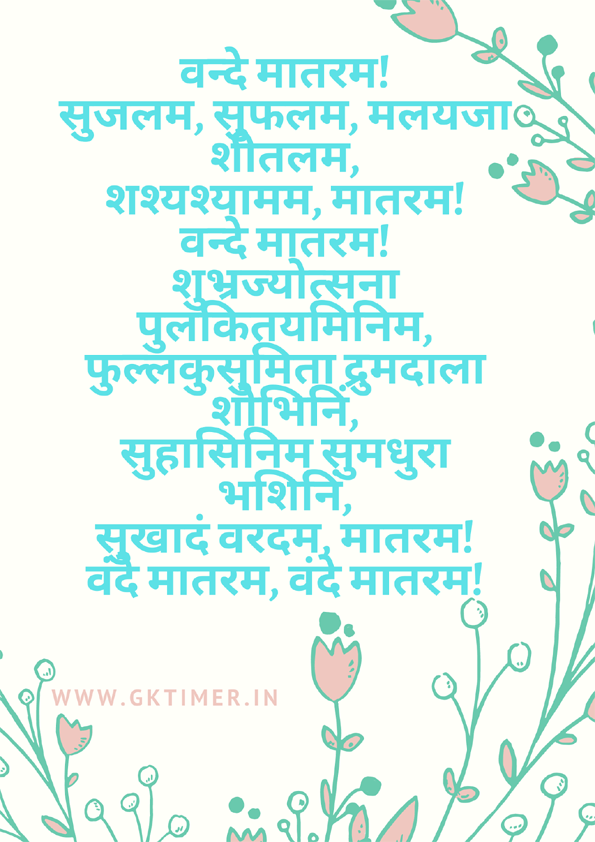 वन्दे मातरम!
सुजलम, सुफलम, मलयजा
शीतलम,
शश्यश्यामम, मातरम!
वन्दे मातरम!
शुभ्रज्योत्सना
पुलकितयमिनिम,
फुल्लकुसुमिता द्रुमदाला
शोभिनिं,
सुहासिनिम सुमधुरा
भशिनिं,
सुखादं वरदम, मातरम!
वंदे मातरम, वंदे मातरम!
WWW.GKTIMER.IN